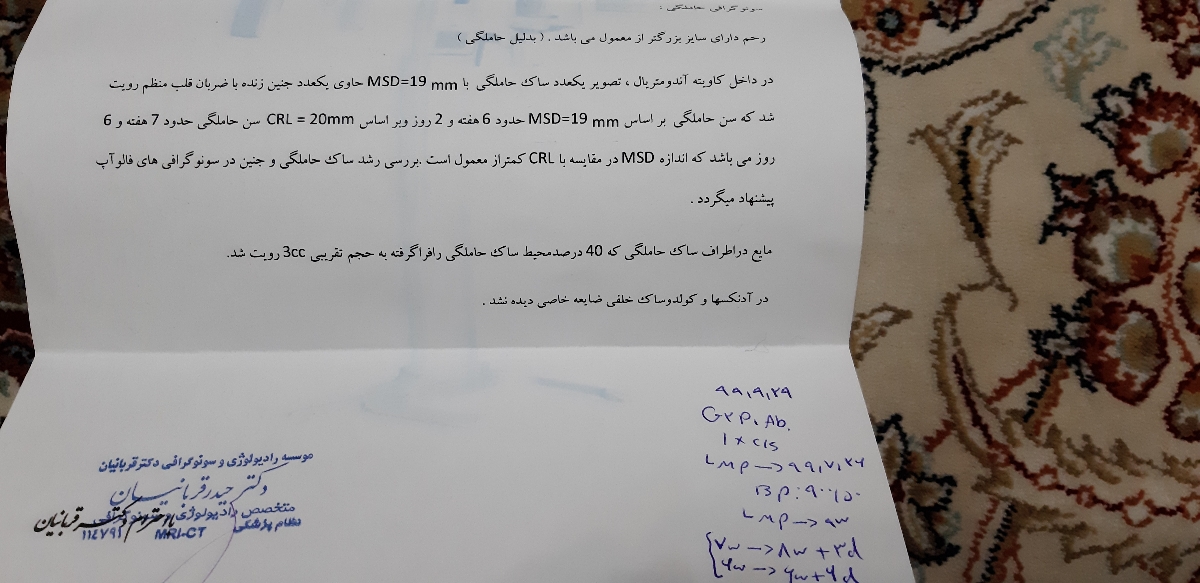 سونوگرافی حاملگی :
رحم دارای سایز بزرگتر از معمول می باشد . ( بدلیل حاملگی )
در داخل کاویته آندومتریال ، تصویر یکعدد ساک حاملگی با MSD=19 mm حاوی یکعدد جنین زنده با ضربان قلب منظم رویت
شد که سن حاملگی بر اساس MSD=19 mm حدود 6 هفته و 2 روز وبر اساس CRL = 20mm سن حاملگی حدود 7 هفته و 6
روز می باشد که اندازه MSD در مقایسه با CRL کمتراز معمول است .بررسی رشد ساک حاملگی و جنین در سونوگرافی های فالوآپ
پیشنهاد میگردد .
مایع دراطراف ساک حاملگی که 40 درصدمحیط ساک حاملگی رافراگرفته به حجم تقریبی 3cc رویت شد.
در آدنکسها و کولدوساک خلفی ضایعه خاصی دیده نشد .
۹۹,۹,۲۹
G۲P۱Ab.
1 x c/s
LMP → ۹۹,۷,۲۶
BP:
LMP → ۹w
۷w → ۸w + ۳d
۶w → ۶w + ۶d
موسسه رادیولوژی و سونوگرافی دکترقربانیان
دکتر حیدر قربانیان
متخصص رادیولوژی و سونوگرافی
بااحترام دکتر قربانیان
نظام پزشکی
MRI-CT